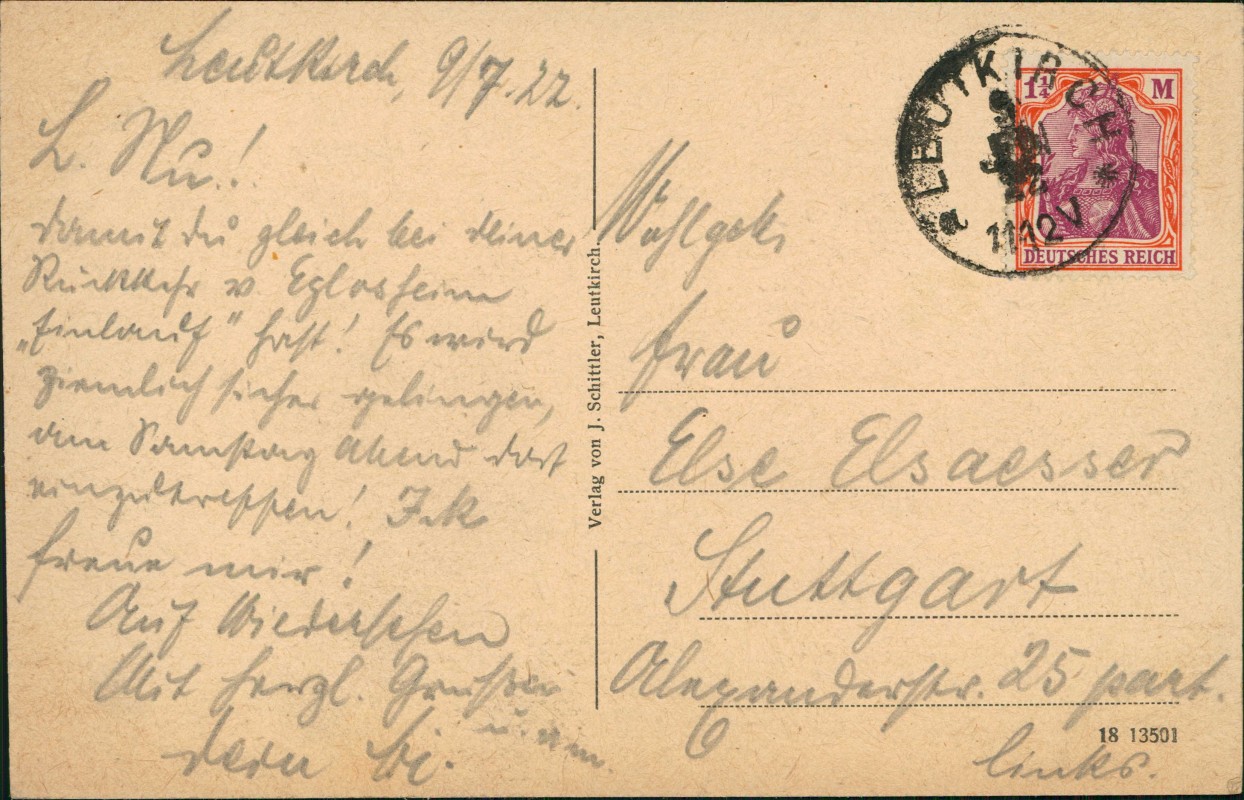 Leutkirch, 9/7.22.
L. Mu.!
damit du gleich bei deiner
Rückkehr v. Eglosheim
„Einlauf" hast! Es wird
ziemlich sicher gelingen,
am Samstag Abend dort
einzutreffen! Ick
freue mir!
Auf Wiedersehen
Mit herzl. Grüßen
dein
Verlag von J. Schittler, Leutkirch.
LEUTKIRCH
9
JUL
22
11-12V
a
1¼ M
DEUTSCHES REICH
Wohlgeb.
Frau
Else Elsaesser
Stuttgart
Alexanderstr. 25 part.
links.
18 13501